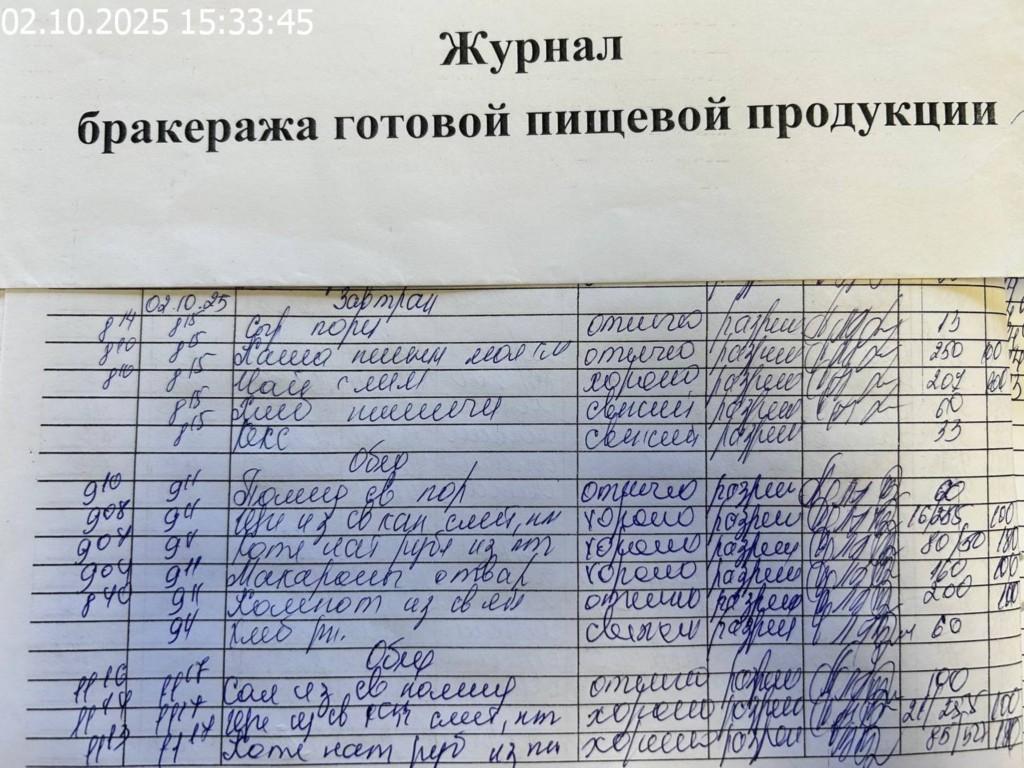 02.10.2025 15:33:45
Журнал
бракеража готовой пищевой продукции
02.10.25 Завтрак
8 14 8 15 Сыр порц отлично разреш 15
8 10 8 15 Каша пшен мол отлично разреш 250 100
8 10 8 15 Чай слим хорошо разреш 207 100
8 15 Хлеб пшенич свежий разреш 60
8 15 Кекс свежий разреш 33
Обед
9 10 9 11 Помид св пор отлично разреш 60
9 08 9 11 Щи из св кап смет, пт хорошо разреш 100
9 07 9 11 Котл нат руб из пт хорошо разреш 80/50 100
9 04 9 11 Макароны отвар хорошо разреш 160 100
8 40 9 11 Компот из св отлично разреш 200 100
9 11 хлеб рж. свежий разреш 60
Обед
11 16 11 17 Сал из св помид отлично разреш 100
11 14 11 17 Щи из св кап смет, пт хорошо разреш 100
11 13 11 17 Котл нат руб из пт хорошо разреш 100